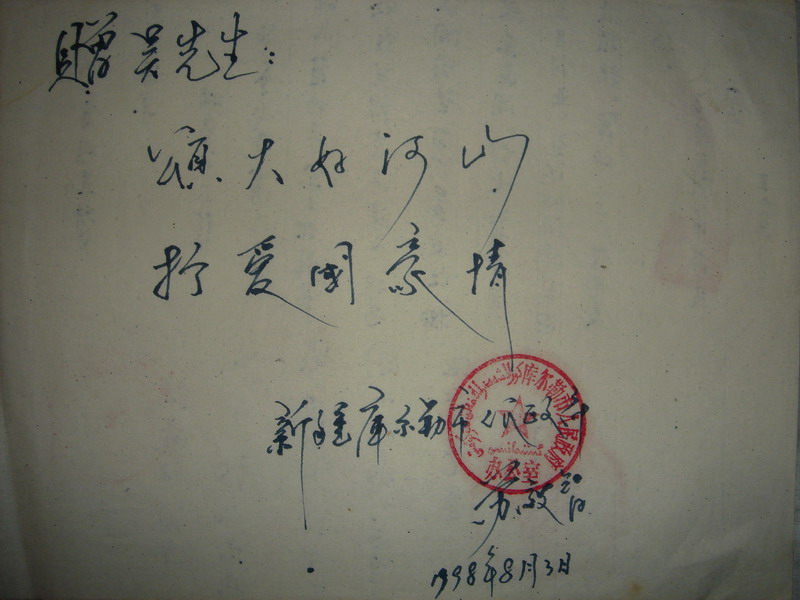 贈吴先生：
頌大好河山
抒爱国豪情
新疆库尔勒市人民政府
库尔勒市人民政府
办公室
1998年8月3日